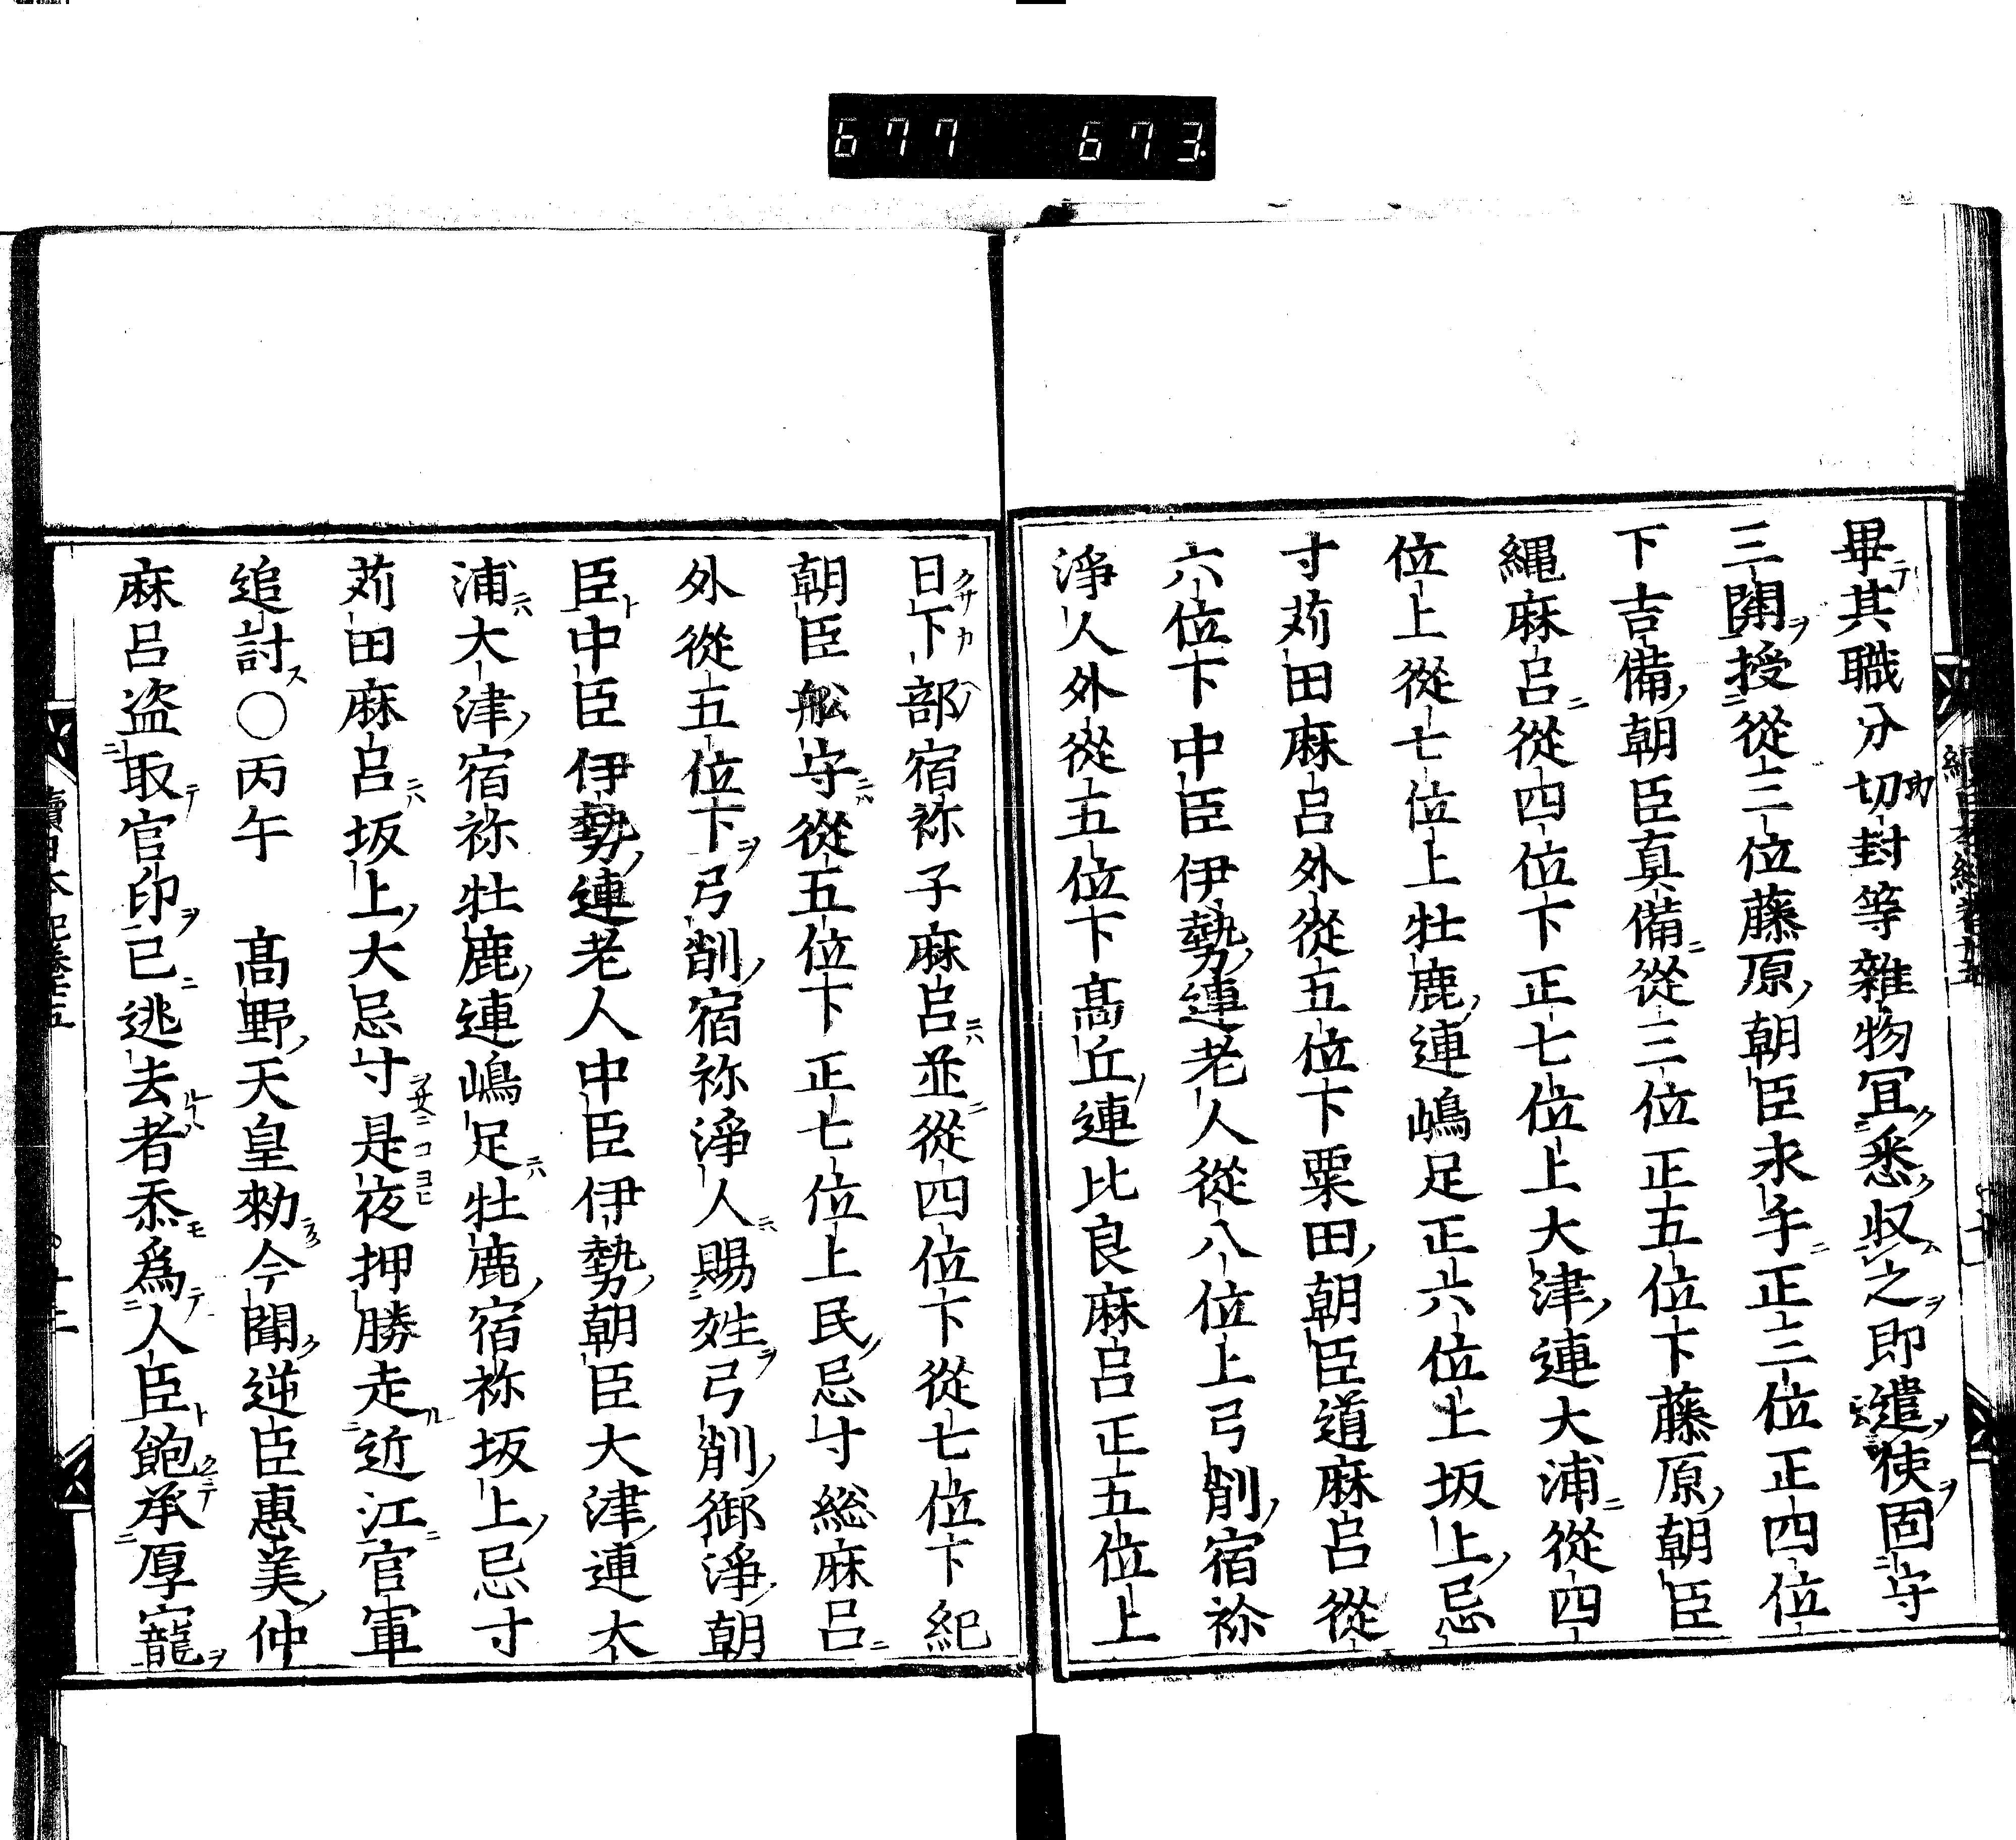 677 673
畢其職分切封等雜物冝悉収之即遣使固守
三関授從三位藤原朝臣永手正三位正四位
下吉備朝臣真備從三位正五位下藤原朝臣
縄麻呂從四位下正七位上大津連大浦從四
位上從七位上牡鹿連嶋足正六位上坂上忌
寸苅田麻呂外從五位下粟田朝臣道麻呂從
六位下中臣伊勢連老人從八位上弓削宿祢
淨人外從五位下髙丘連比良麻呂正五位上
日下部宿祢子麻呂並從四位下從七位下紀
朝臣舩守從五位下正七位上民忌寸総麻呂
外從五位下弓削宿祢淨人賜姓弓削御淨朝
臣中臣伊勢連老人中臣伊勢朝臣大津連大
浦大津宿祢牡鹿連嶋足牡鹿宿祢坂上忌寸
苅田麻呂坂上大忌寸是夜押勝走近江官軍
追討○丙午 髙野天皇勅今聞逆臣惠美仲
麻呂盗取官印已逃去者忝爲人臣飽承厚寵